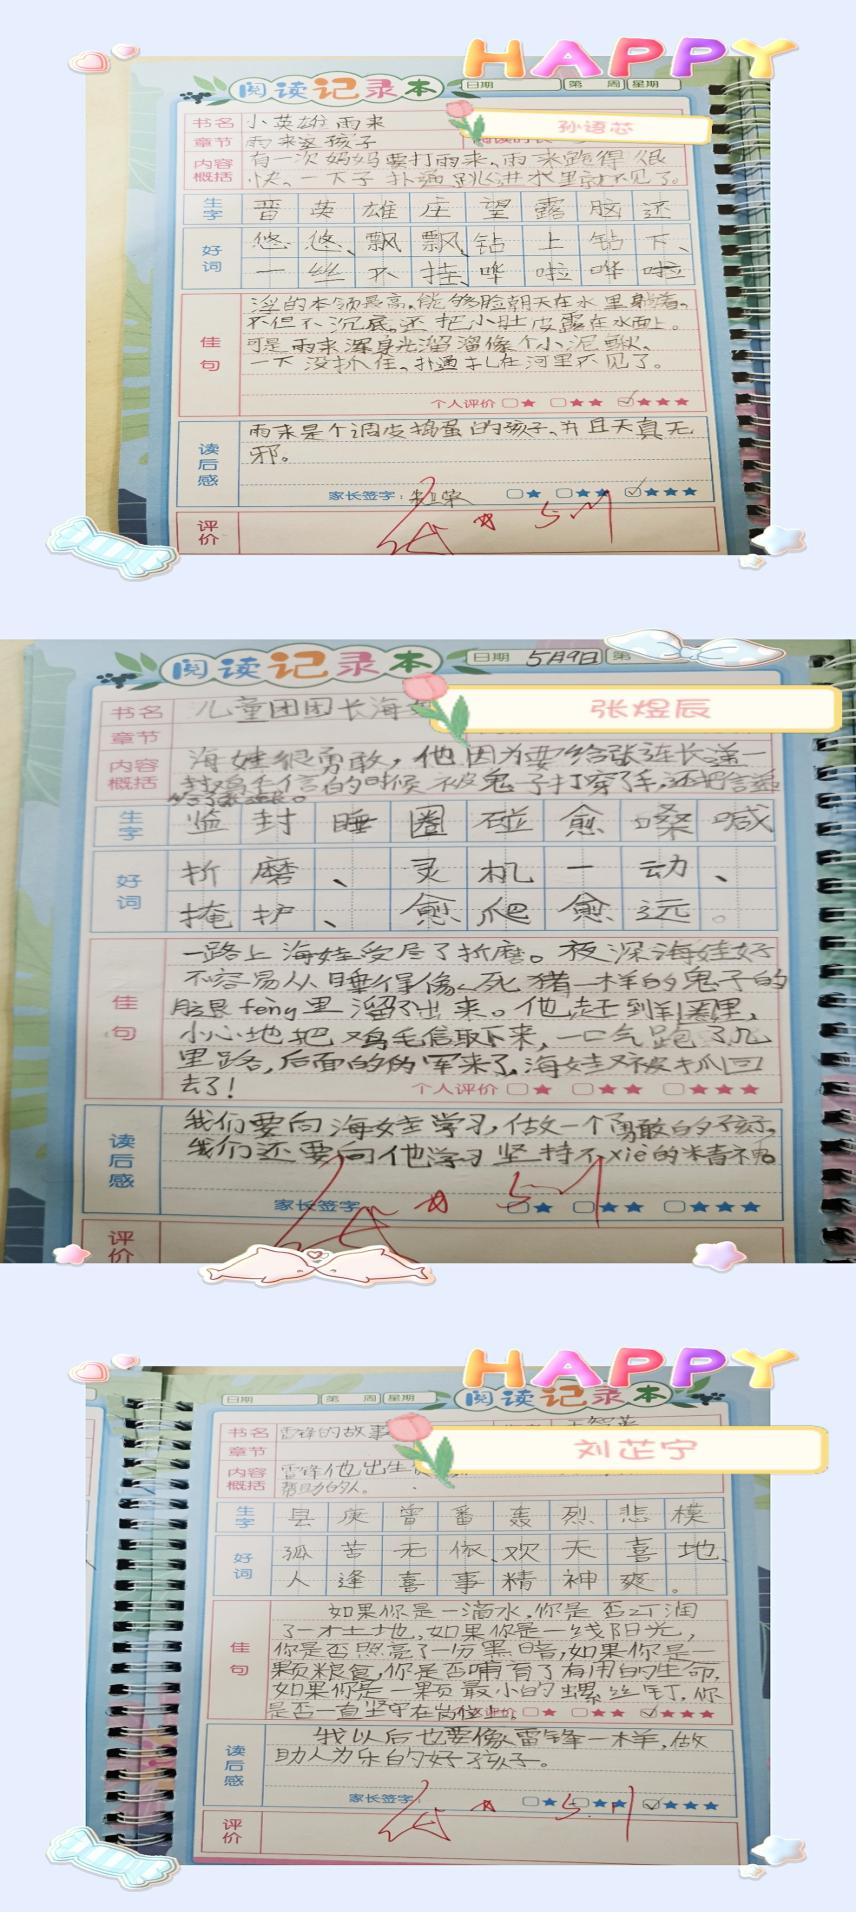 HAPPY
阅读记录本
日期 第 周 星期
孙语芯
书名 小英雄雨来
章节 雨来这孩子
内容概括 有一次妈妈要打雨来,雨来跑得很
快。一下子扑通跳进水里就不见了。
生字 晋 英 雄 庄 望 露 脑 还
好词 悠悠、飘飘、钻上钻下、
一丝不挂、哗啦哗啦
佳句 浮的本领最高,能够脸朝天在水里躺着,
不但不沉底,还把小肚皮露在水面上。
可是雨来浑身光溜溜像个小泥鳅,
一下没抓住,扑通扎在河里不见了。
个人评价 ★ ★★ ★★★
读后感 雨来是个调皮捣蛋的孩子,并且天真无
邪。
家长签字: ★ ★★ ★★★
评价
阅读记录本
日期 5月9日 第
张煜辰
书名 儿童团团长海
章节
内容概括 海娃很勇敢,他因为要给张连长送一
封鸡毛信的时候被鬼子打穿了手,还把信递
生字 监 封 睡 圈 碰 愈 嗓 喊
好词 折磨、灵机一动、
掩护、愈爬愈远。
佳句 一路上海娃受尽了折磨。夜深海娃好
不容易从睡得像死猪一样的鬼子的
脚跟fèng里溜了出来。他赶到羊圈里,
小心地把鸡毛信取下来,一口气跑了几
里路,后面的伪军来了,海娃又被抓回
去了!
个人评价 ★ ★★ ★★★
读后感 我们要向海娃学习,做一个勇敢的好孩子,
我们还要向他学习坚持不xiè的精神。
家长签字 ★ ★★ ★★★
评价
HAPPY
日期 第 周 星期
阅读记录本
刘芷宁
书名 雷锋的故事
章节
内容概括 雷锋他出生
帮助的人。
生字 县 庚 曾 番 轰 烈 悲 模
好词 孤苦无依、欢天喜地、
人逢喜事精神爽。
佳句 如果你是一滴水,你是否滋润
了一寸土地,如果你是一线阳光,
你是否照亮了一分黑暗,如果你是一
颗粮食,你是否哺育了有用的生命,
如果你是一颗最小的螺丝钉,你
是否一直坚守在岗位上。
个人评价 ★ ★★ ★★★
读后感 我以后也要像雷锋一样,做
助人为乐的好孩子。
家长签字: ★ ★★ ★★★
评价